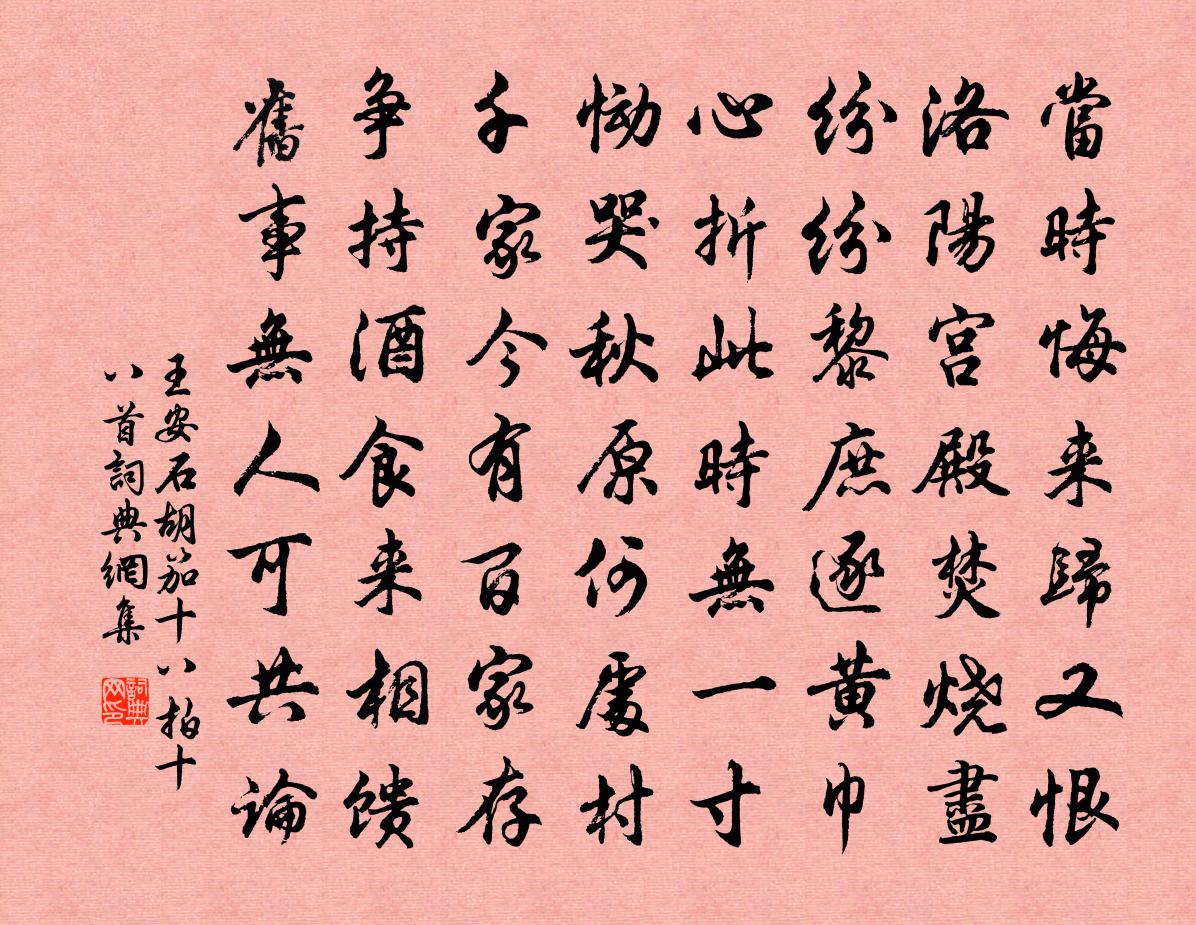 當時悔来歸又恨
洛陽宫殿焚燒盡
紛紛黎庶逐黄巾
心折此時無一寸
慟哭秋原何處村
千家今有百家存
争持酒食来相馈
舊事無人可共論
王安石胡笳十八拍十
八首詞典網集
詞典网印